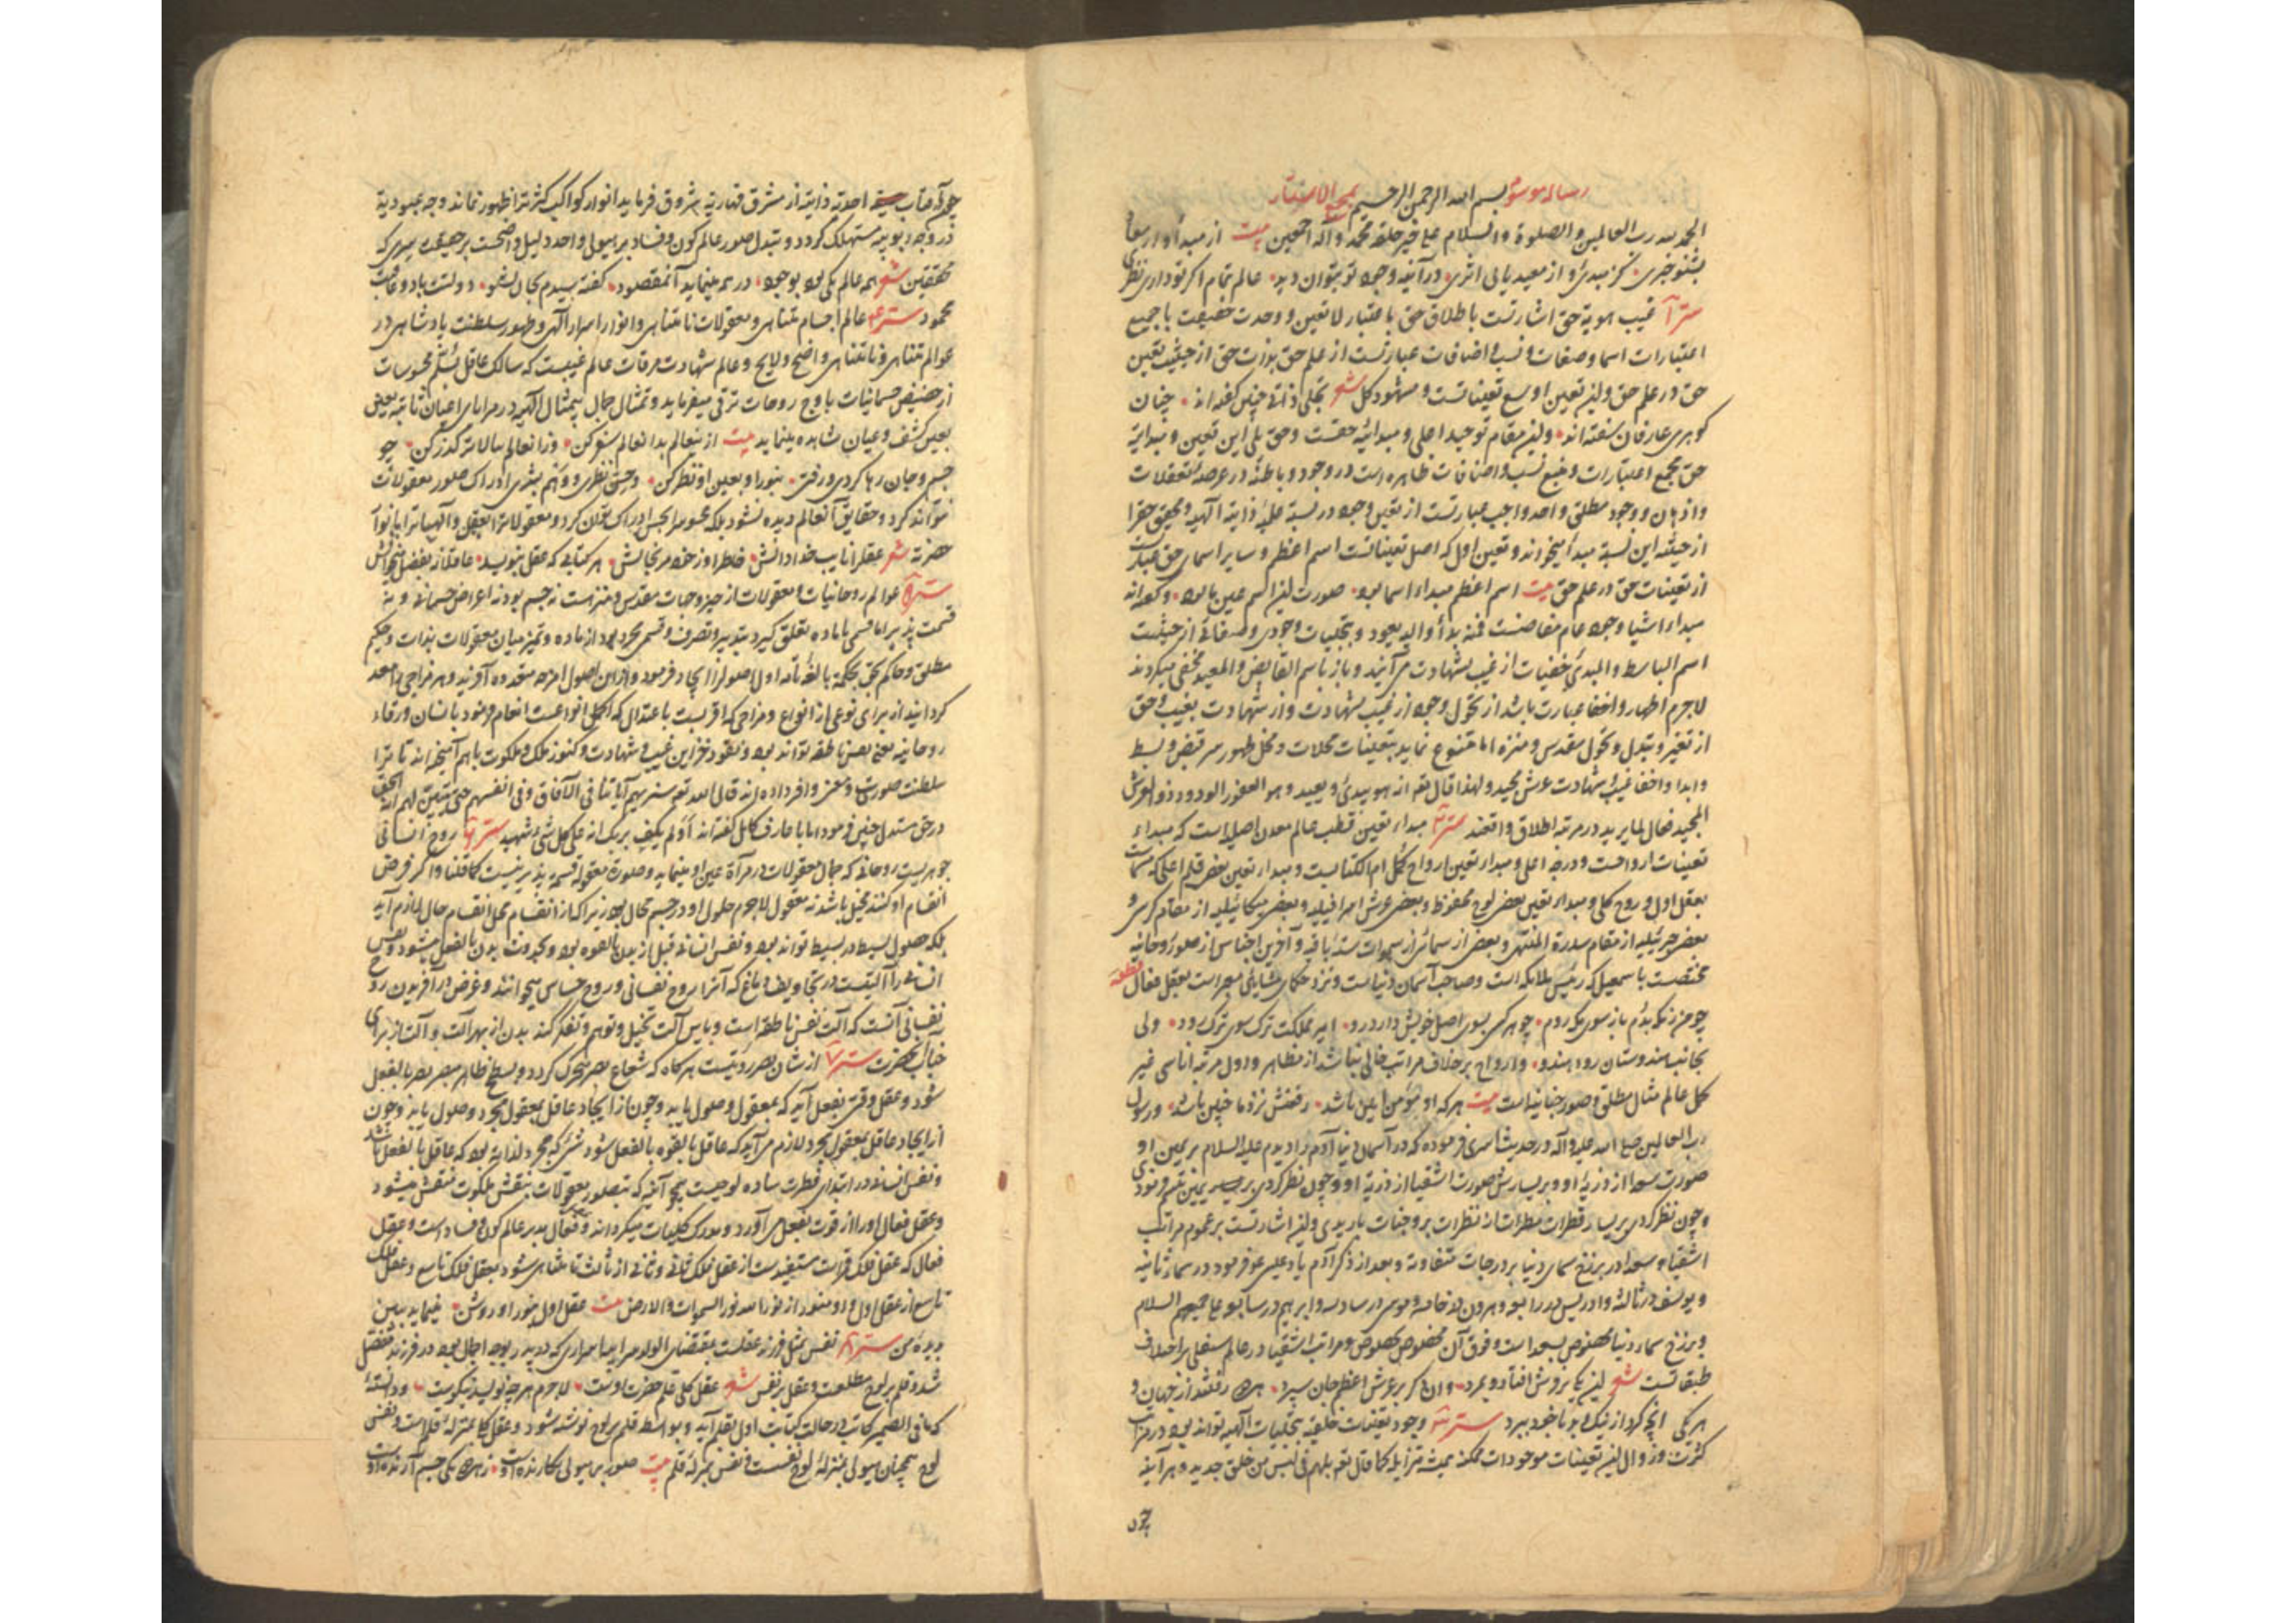 رساله موسوم بسم الله الرحمن الرحیم بمجمع الاسرار
الحمد لله رب العالمین و الصلوة و السلام علی خیر خلقه محمد و آله اجمعین بیت از مبدأ و از معاد
بشنو خبری کز مبدئ و از معید یابی اثری در آئینه وجود تو بتوان دید عالم تمام اکر تو داری نظری
سترا غیب هویة حق اشارتست باطلاق حق باعتبار لا تعین و وحدت حقیقت با جمیع
اعتبارات اسما و صفات و نسب و اضافات عبارتست از علم حق بذات حق از حیثیت تعین
حق در علم حق و این تعین اوسع تعیناتست و مشهود کل شعر تجلی ذاتی چنین کفته اند چنان
کوهری عارفان سفته اند و این مقام توحید اصلی و مبدائیه حقست و حق یلی این تعین و مبدایة
حق مجمع اعتبارات و منبع نسب و اضافات ظاهره است در وجود و باطنه در عرصه تعقلات
و اذهان و وجود مطلق و احد واجب عبارتست از تعین وجود در نسبة علمیه ذاتیة الهیه و محقق حقرا
از حیثیة این نسبة مبدأ میخواند و تعین اول که اصل تعیناتست اسم اعظم و سایر اسمای حق عبارتست
از تعینات حق در علم حق بیت اسم اعظم مبداء اسما بود صورت این اسم عین ما بود و کفته اند
مبداء اشیا وجود عام مفاضست فمنه بدأ و الیه یعود و بتجلیات وجودی و صفاتی از حیثیت
اسم الباسط و المبدئ خفیات از غیب بشهادت می آیند و باز باسم القابض و المعید مخفی میکردند
لاجرم اظهار و اخفا عبارت باشد از تحول وجود از غیب بشهادت و از شهادت بغیب و حق
از تغیر و تبدل و تحول مقدس و منزه اما متنوع نماید بتعینات محلات و محل ظهور سر قبض و بسط
و ابدا و اخفا غیب و شهادت عرش مجید و لهذا قال تعم انه هو یبدئ و یعید و هو الغفور الودود ذو العرش
المجید فعال لما یرید در مرتبه اطلاق سترا مبداء تعین قطب عالم معدن اصلی است که مبداء
تعینات ارواحست و درجه اعلی و مبداء تعین ارواح کمل ام الکتابست و مبداء تعین بعضی قلم اعلی که مسمات
بعقل اول و روح کلی و مبداء تعین بعضی لوح محفوظ و بعضی عرش اسرافیلیه و بعضی میکائیلیه از مقام کرسی و
بعضی جبرئیلیه از مقام سدرة المنتهی و بعضی از سمائی از سموات ستة باقیه و آخرین اجناس از صور روحانیه
مختصت باسمعیل که رئیس ملایکه است و صاحب آسمان دنیاست و نزد حکمای مشایی معبر است بعقل فعال قطعه
چو من ز بدم باز سوی یک روم چو هر کس بسوی اصل خویش دارد رو امیر مملکت ترک سوی ترک رود ولی
بجانب هندوستان رود هندو و ارواح بر خلاف مراتب خالی نباشد از مظاهر و اول مرتبه اناسی غیر
کمل عالم مثال مطلق و صور جنانیه است بیت هر که او مؤمن این باشد رفتنش نزد ما چنین باشد و رسول
رب العالمین صلی الله علیه و آله در حدیث اسری فرموده که در آسمان دنیا آدم را دیدم علیه السلام بر یمین او
صورت سعدا از ذریه او و بر یسارش صورت اشقیا از ذریة او و چون نظر کردی بر یمین تبسم فرمودی
و چون نظر کردی بر یسار قطرات مطرات از نظرات بر وجنات باریدی و این اشارتست بر عموم مراتب
اشقیا و سعدا در برزخ سمای دنیا بر درجات متفاوته و بعد از ذکر آدم یاد عیسی عم فرمود در سماء ثانیه
و یوسف در ثالثه و ادریس در رابعه و هرون در خامسه و موسی در سادسه و ابراهیم در سابعه علی جمیعهم السلام
و برزخ سماء دنیا مخصوص بسعداست و فوق آن مخصوص بخصوص و مراتب اشقیا در عالم سفلی بر اختلاف
طبقاتست شعر این یکی بر فرش افتاد و بمرد وان دکر بر عرش اعظم جان سپرد همه رفتند از جهان و
هر یکی انچه کرد از نیک و بد با خود ببرد ستر وجود تعینات خلقیه بتجلیات الهیه تواند بود در مراتب
کثرت و زوال این تعینات موجودات ممکنه بمیشه متزایله کما قال تعم بل هم فی لبس من خلق جدید و هر آینه
چون
چون آفتاب احدیة ذاتیة از مشرق قهاریة شروق فرماید انوار کواکب کثرت را ظهور نماند و وجه عبودیة
در وجه ربوبیة مستهلک کردد و تبدل صور عالم کون و فساد بر هیولی واحده دلیل واضحست بر حقیقت سری که
محققین شعر همه عالم یکی بود بوجود در همه مینماید آنمقصود کفته سیدم بجان بشنو دولتت باد و عاقبت
محمود ستر عالم اجسام متناهی و معقولات نامتناهی و انوار اسرار الهی و ظهور سلطنت پادشاهی در
عوالم متناهی و نامتناهی واضح و لایح و عالم شهادت مرقات عالم غیبست که سالک عاقل بسلم محسوسات
از حضیض جسمانیات باوج روحات ترقی میفرماید و تمثال جمال بیمثال الهی در مرایای اعیان ثابته بعین
بعین کشف و عیان مشاهده مینماید بیت از ینعالم بدانعالم سفر کن وز انعالم ببالاتر کذر کن چو
جسم و جان رها کردی و رفتی بنور او بعین او نظر کن و حس نظری و وهم بشری ادراک صور معقولات
نتواند کرد و حقایق آنعالم دیده نشود بلکه محسوس را بحس ادراک توان کرد و معقولات را بعقل و الهیات را بانوار
حضرته شعر عقلرا نایب خدا دانش فاضل او ز خود مرنجانش هر کتابی که عقل بنویسد عاقلانه بفضل میخوانش
ستر عوالم روحانیات و معقولات از حیز و جهات مقدس و منزه است نه جسم بود نه اعراض جسمانی و نه
قسمت پذیر اما قسمی با ماده تعلق کیرد بتدبیر و تصرف و قسمی مجرد بود از ماده و تمیز میان معقولات بذات و حکیم
مطلق و حاکم بحق بحکمة بالغه تامه اولا اصول را ایجاد فرمود و از این اصول امزجه متعدده آفرید و هر مزاجی را معد
کردانید از برای نوعی از انواع و مزاجی که اقربست باعتدال که اکمل انواعست انعام فرمود بانسان و رقاء
روحانیه یعنی نفس ناطقه تواند بود و نقود خزاین غیب و شهادت و کنوز ملک و ملکوت با هم آمیخته اند تا ترا
سلطنت صورت و معنی وافر داده اند قال الله تعم سنریهم آیاتنا فی الآفاق و فی انفسهم حتی یتبین لهم انه الحق
در حق مستدل چنین فرمود اما با عارف کامل کفته اند أو لم یکف بربک انه علی کل شیء شهید ستر روح انسانی
جوهریست روحانی که جمال معقولات در مرآة عین او مینماید و صورت معقوله قسمة پذیر نیست کما قلنا و اکر فرض
انقسام او کنند مخیل باشد نه معقول لاجرم حلول او در جسم محال بود زیرا که از انقسام محل انقسام حال لازم آید
بلکه حصول بسیط در بسیط تواند بود و نفس انسانی قبل از بدن بالقوه بود و بحدوث بدن بالفعل میشود و نفس
انسانی را آلتیست در تجاویف دماغ که آنرا روح نفسانی و روح حساس میخوانند و غرض در آفریدن روح
نفسانی آنست که آلت نفس ناطقه است و باین آلت تخیل و توهم و تفکر کند بدن از بهر آلت و آلت از برای
جناب حضرت ستر از شان بصر رؤیتست هر کاه که شعاع بصر متحرک کردد و بسطح ظاهر مبصر بصر بالفعل
شود و عقل وقتی بفعل آید که بمعقول وصول یابد و چون از ایجاد عاقل بمعقول مجرد وصول یابد و چون
از ایجاد عاقل بمعقول مجرد لازم می آید که عاقل بالقوه بالفعل شود شیء که مجرد لذاته بود که عاقل بالفعل باشد
و نفس انسانی در ابتدای فطرت ساده لوحیست هیچ آینه که بصور معقولات بنقش ملکوت منتقش میشود
و عقل فعال او را از قوت بفعل می آورد و مدرک کلیات میکرداند و فعال مدبر عالم کون و فساد است و عقل
فعال که عقل فلک قمراست مستفیدست از عقل فلک ثانی و ثانی از ثالث تا متناهی شود بعقل فلک تاسع و عقل فلک
تاسع از عقل اول و او منور از نور الله نور السموات و الارض بیت عقل اول بنور او روشن مینماید ببین
بدیده من ستر نفس بمثل فرزند عقلست بمقتضای الولد سر ابیه اسراری که در پدر بوجه اجمال بود در فرزند مفصل
شد و قلم بر لوح مطلعست و عقل بر نفس شعر عقل کلی قلم حضرت اوست لاجرم هرچه نویسد نیکوست و دانستهٔ
که ما فی الضمیر کاتب در حالت کتابت اول بقلم آید و بواسطه قلم بر لوح نوشته شود و عقل کل بمنزلهٔ قلم است و نفس
لوح همچنان هیولی بمنزلهٔ لوح نفست و نفس بمنزله قلم بیت صور بر هیولی نکارنده اوست ز هر یکی جسم آرنده اوست